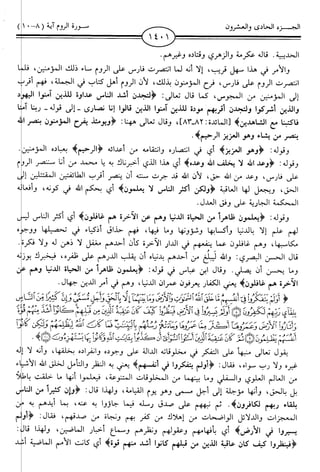 الجـــزء الحادي والعشرون
سورة الروم آية (٨-١٠)
١٤٠١
الحديبية. قاله عكرمة والزهري وقتاده وغيرهم.
والأمر في هذا سهل قريب، إلا أنه لما انتصرت فارس على الروم ساء ذلك المؤمنين، فلما
انتصرت الروم على فارس، فرح المؤمنون بذلك، لأن الروم أهل كتاب في الجملة، فهم أقرب
إلى المؤمنين من المجوس، كما قال تعالى: ﴿لتجدن أشد الناس عداوة للذين آمنوا اليهود
والذين أشركوا ولتجدن أقربهم مودة للذين آمنوا الذين قالوا إنا نصارى -إلى قوله- ربنا آمنا
فاكتبنا مع الشاهدين﴾ [المائدة:٨٢-٨٣]، وقال تعالى ههنا: ﴿ويومئذ يفرح المؤمنون بنصر الله
ينصر من يشاء وهو العزيز الرحيم﴾.
وقوله: ﴿وهو العزيز﴾ أي في انتصاره وانتقامه من أعدائه ﴿الرحيم﴾ بعباده المؤمنين.
وقوله: ﴿وعد الله لا يخلف الله وعده﴾ أي هذا الذي أخبرناك به يا محمد من أنا سننصر الروم
على فارس، وعد من الله حق، لأن الله قد جرت سنته أن ينصر أقرب الطائفتين المقتتلتين إلى
الحق، ويجعل لها العاقبة ﴿ولكن أكثر الناس لا يعلمون﴾ أي بحكم الله في كونه، وأفعاله
المحكمة الجارية على وفق العدل.
وقوله: ﴿يعلمون ظاهراً من الحياة الدنيا وهم عن الآخرة هم غافلون﴾ أي أكثر الناس ليس
لهم علم إلا بالدنيا وأكسابها وشؤونها وما فيها، فهم حذاق أذكياء في تحصيلها ووجوه
مكاسبها، وهم غافلون عما ينفعهم في الدار الآخرة كأن أحدهم مغفل لا ذهن له ولا فكرة.
قال الحسن البصري: والله ليبلغ من أحدهم بدنياه أن يقلب الدرهم على ظفره، فيخبرك بوزنه
وما يحسن أن يصلي. وقال ابن عباس في قوله: ﴿يعلمون ظاهراً من الحياة الدنيا وهم عن
الآخرة هم غافلون﴾ يعني الكفار يعرفون عمران الدنيا، وهم في أمر الدين جهال.
يقول تعالى منبهاً على التفكر في مخلوقاته الدالة على وجوده وانفراده بخلقها، وأنه لا إله
غيره ولا رب سواه، فقال: ﴿أولم يتفكروا في أنفسهم﴾ يعني به النظر والتأمل لخلق الله الأشياء
من العالم العلوي والسفلي وما بينهما من المخلوقات المتنوعة، فيعلموا أنها ما خلقت باطلاً
بل بالحق، وأنها مؤجلة إلى أجل مسمى وهو يوم القيامة، ولهذا قال: ﴿وإن كثيراً من الناس
بلقاء ربهم لكافرون﴾. ثم نبههم على صدق رسله فيما جاؤوا به عنه، بما أيدهم به من
المعجزات والدلائل الواضحات من إهلاك من كفر بهم ونجاة من صدقهم، فقال: ﴿أولم
يسيروا في الأرض﴾ أي بأفهامهم وعقولهم ونظرهم وسماع أخبار الماضين، ولهذا قال:
﴿فينظروا كيف كان عاقبة الذين من قبلهم كانوا أشد منهم قوة﴾ أي كانت الأمم الماضية أشد